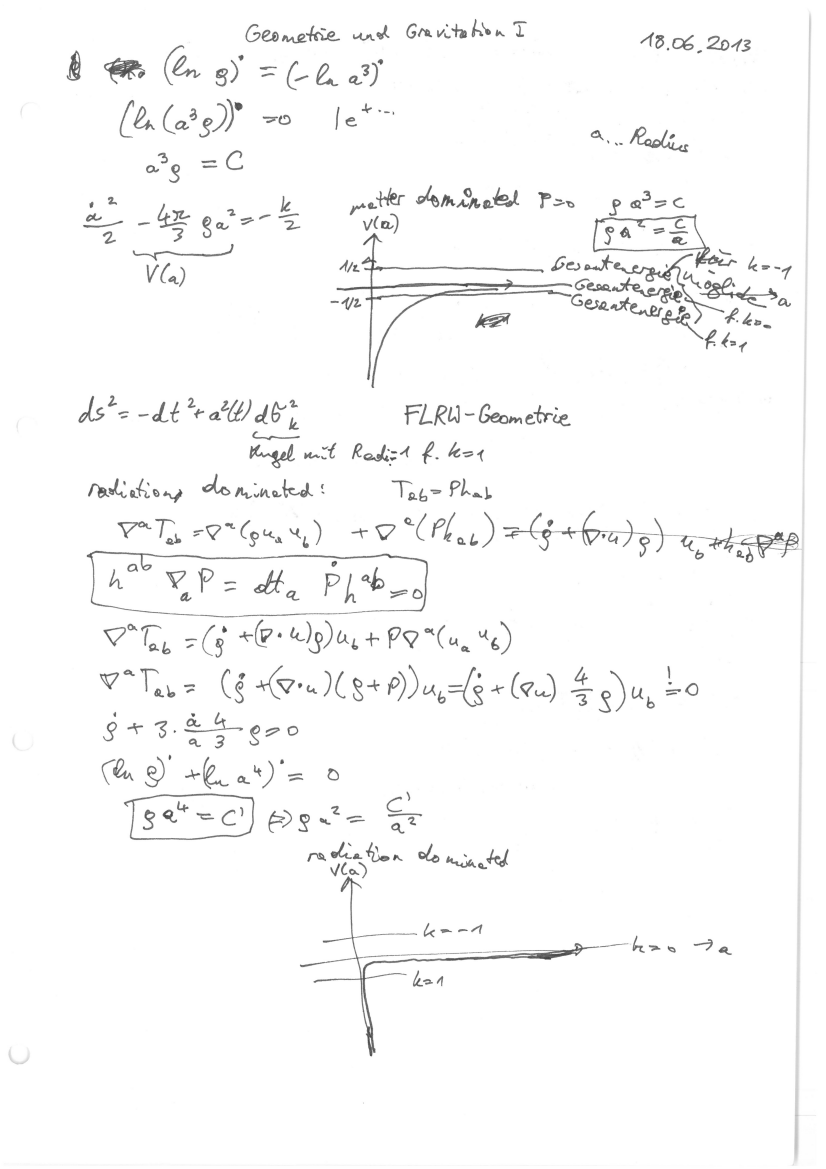 Geometrie und Gravitation I
18.06.2013
(ln ρ)˙ = (-ln a³)˙
(ln(a³ρ))˙ = 0 |e^+...
a... Radius
a³ρ = C
ȧ²/2 - 4π/3 ρa² = -k/2
V(a)
matter dominated P=0 ρa³=C
ρa² = C/a
V(a)
1/2
-1/2
Gesamtenergie für k=-1
mögliche
Gesamtenergie f. k=0
Gesamtenergie f. k=1
→a
ds² = -dt² + a²(t) dσ²_k FLRW-Geometrie
Kugel mit Radi=1 f. k=1
radiation dominated: T_ab = Ph_ab
∇^a T_ab = ∇^a(ρu_a u_b) + ∇^a(Ph_ab) = (ρ̇ + (∇·u)ρ) u_b + h_ab ∇^a P
h^ab ∇_a P = dt_a Ṗ h^ab = 0
∇^a T_ab = (ρ̇ + (∇·u)ρ)u_b + P∇^a(u_a u_b)
∇^a T_ab = (ρ̇ + (∇·u)(ρ+P))u_b = (ρ̇ + (∇u) 4/3 ρ) u_b =! 0
ρ̇ + 3·ȧ/a 4/3 ρ = 0
(ln ρ)˙ + (ln a⁴)˙ = 0
ρa⁴ = C' ⇔ ρa² = C'/a²
radiation dominated
V(a)
k=-1
k=0 →a
k=1